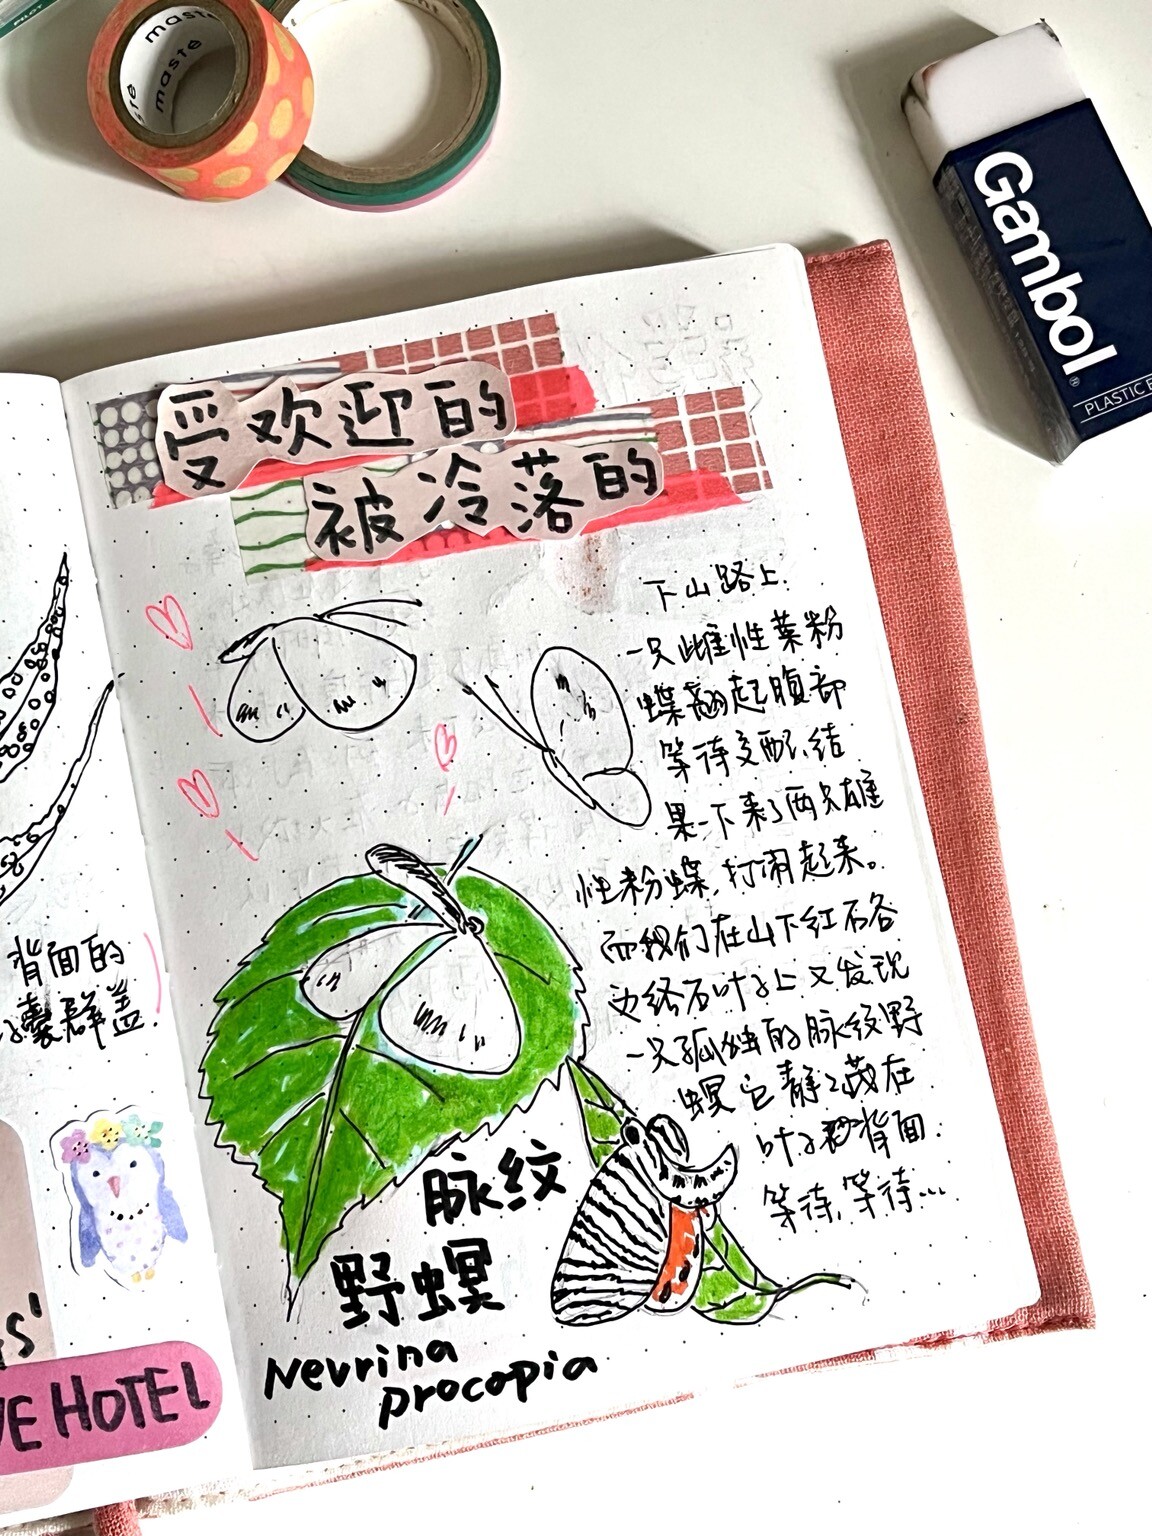 maste
maste
Gambol®
PLASTIC
受欢迎的
被冷落的
下山路上.
一只雌性菜粉
蝶翘起腹部
等待交配,结
果一下来了两只雄
性粉蝶,打闹起来。
而我们在山下红石谷
边络石叶子上又发现
一只孤独的脉纹野
螟 它静々藏在
叶子背面.
等待,等待...
脉纹
野螟
Nevrina
procopia
背面的
囊群盖.
HOTEL